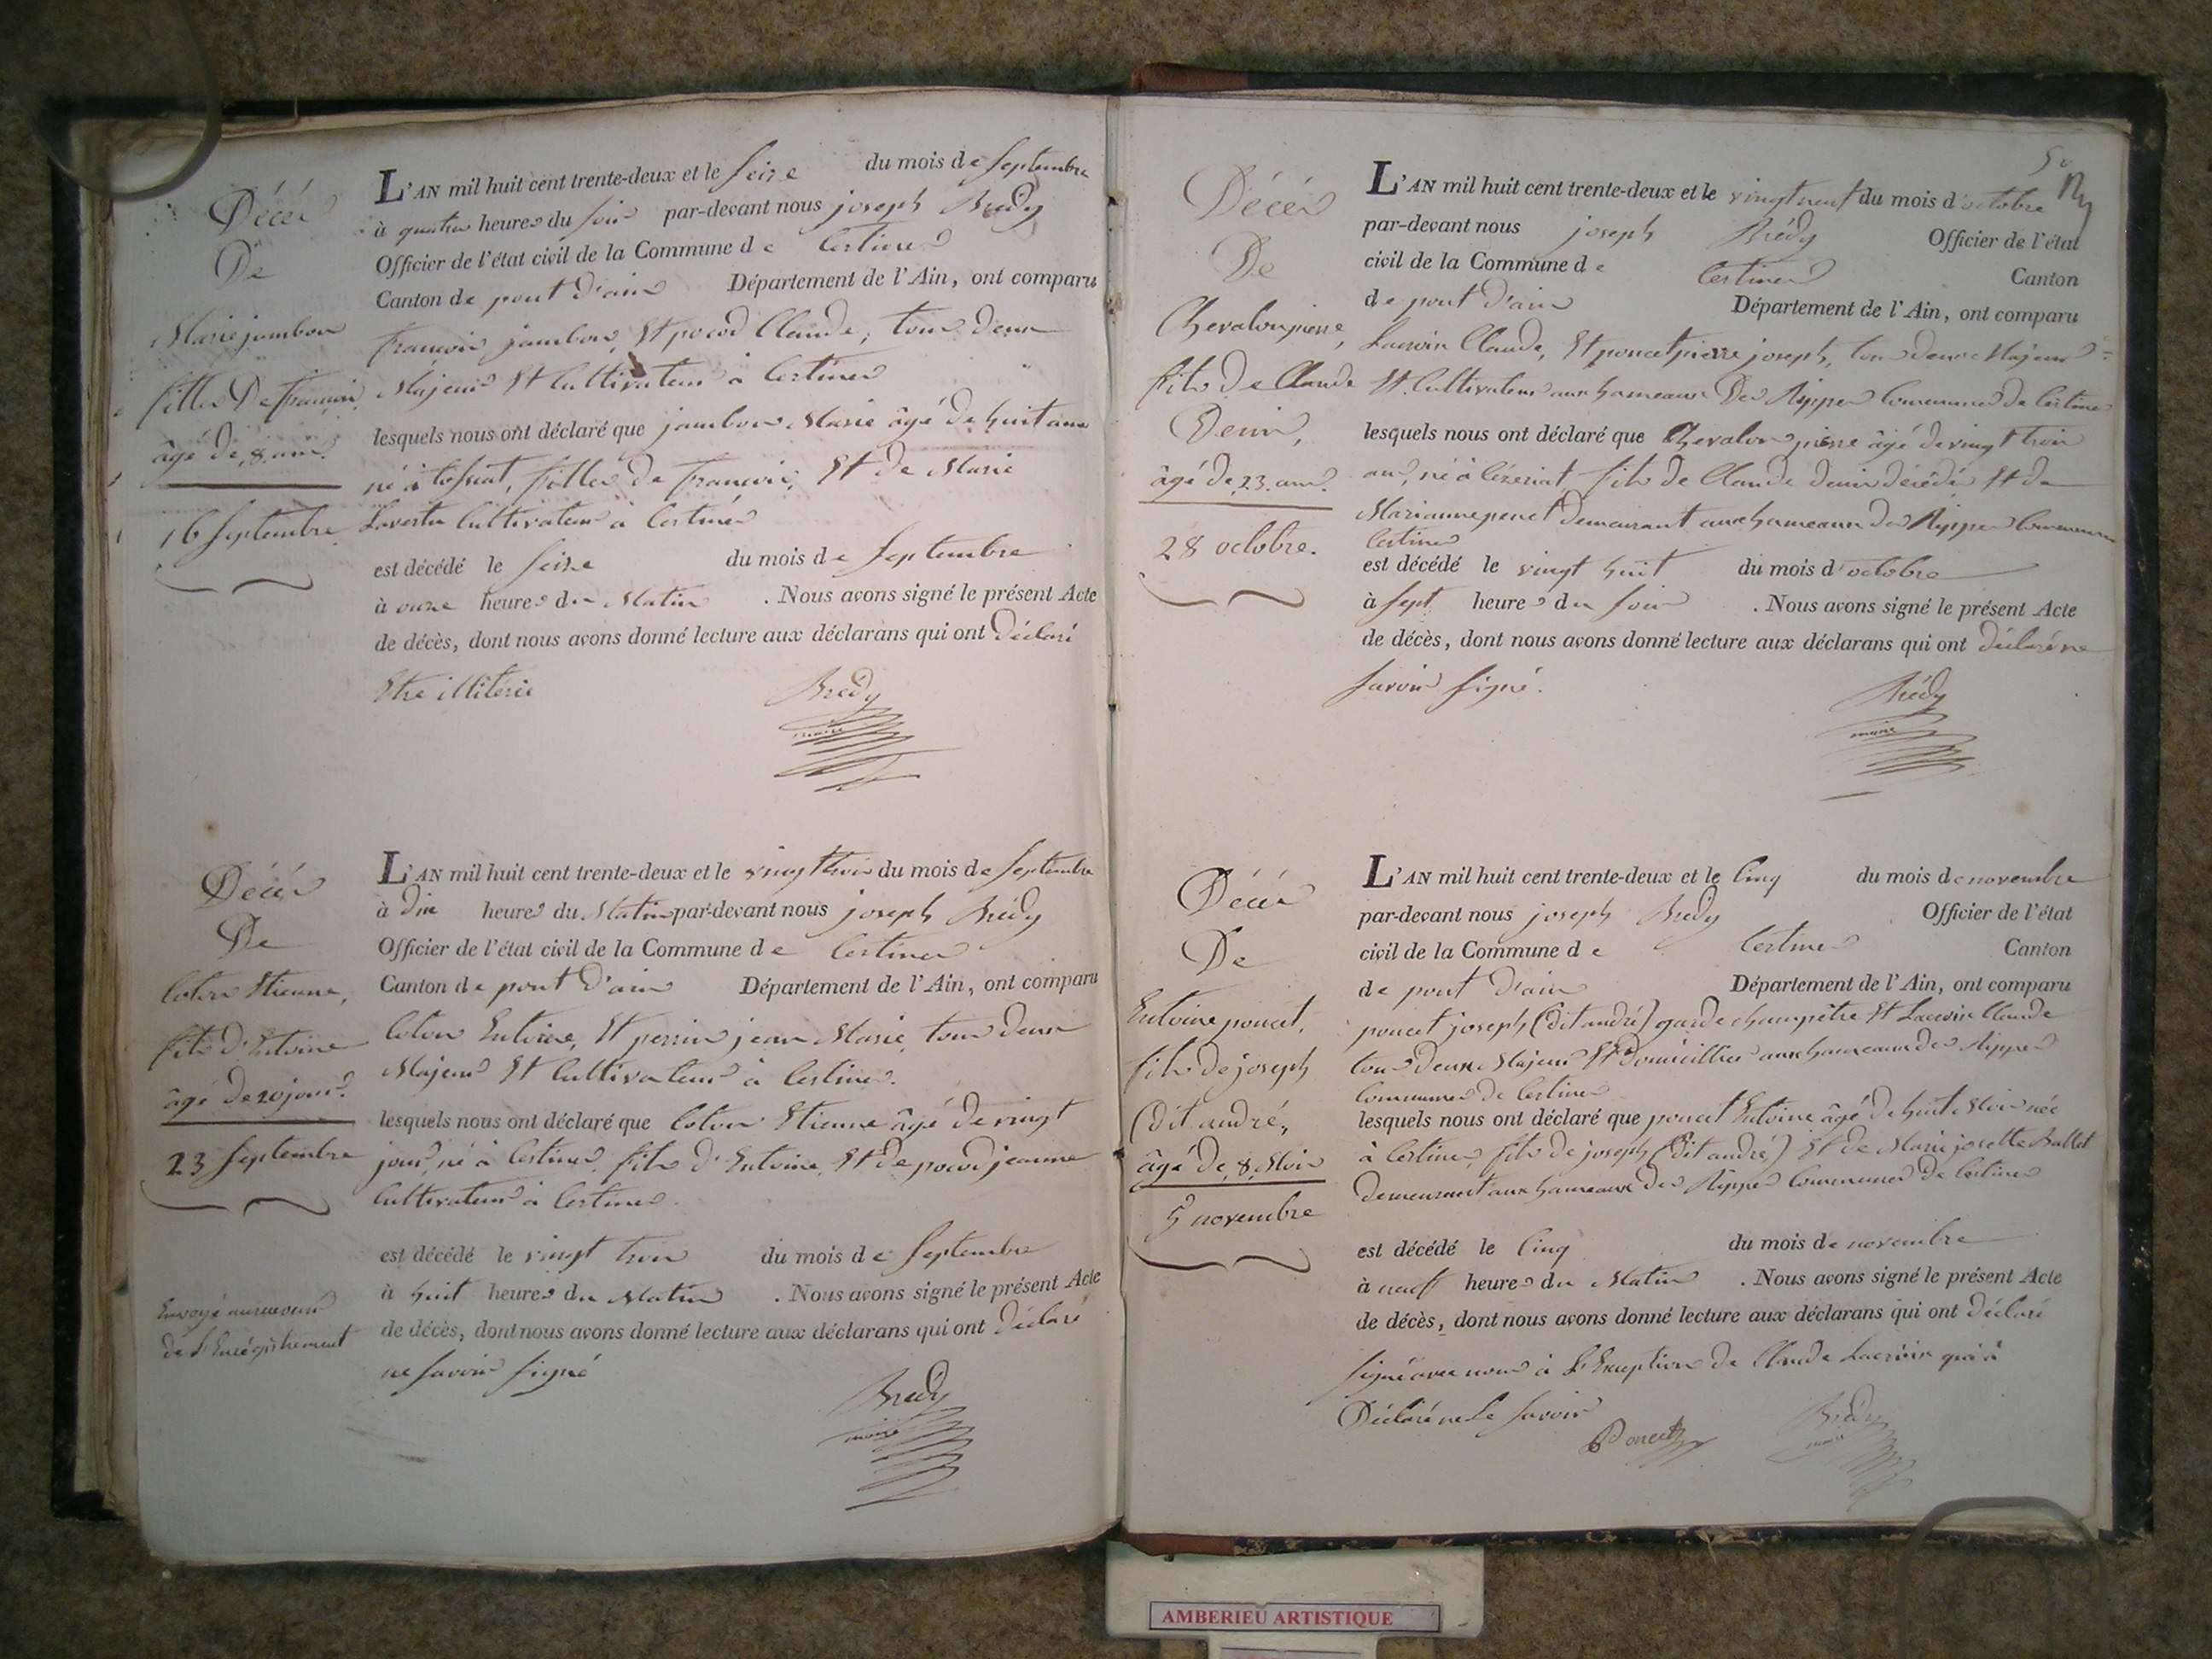 Décès
De
Marie jambon
fille De françois
âgé de 8 ans.
16 Septembre
L'AN mil huit cent trente-deux et le Seize du mois de Septembre
à quatre heures du soir par-devant nous joseph Bredy
Officier de l'état civil de la Commune de Certines
Canton de pont d'ain Département de l'Ain, ont comparu
françois jambon, Et pocod Claude, tous deux
Majeurs Et Cultivateurs à Certines
lesquels nous ont déclaré que jambon Marie âgé de huit ans
né à tossiat, fille de françois, Et de Marie
Cultivateur à Certines
est décédé le Seize du mois de Septembre
à onze heures du Matin . Nous avons signé le présent Acte
de décès, dont nous avons donné lecture aux déclarans qui ont Déclaré
Etre illitérés
Bredy
maire
Décès
De
Coton Etienne,
fils d'Entoine
âgé De 20 jours.
23 Septembre
Envoyé au receveur
de l'Enrégistrement
L'AN mil huit cent trente-deux et le vingt trois du mois de Septembre
à Dix heures du Matin par-devant nous joseph Brédy
Officier de l'état civil de la Commune de Certines
Canton de pont D'ain Département de l'Ain, ont comparu
Coton Entoine, Et perrin jean Marie, tous deux
Majeurs Et Cultivateurs à Certines.
lesquels nous ont déclaré que Coton Etienne âgé De vingt
jours, né à Certines, fils d'Entoine, Et de pocod jeanne
Cultivateurs à Certines.
est décédé le vingt trois du mois de Septembre
à huit heures du Matin . Nous avons signé le présent Acte
de décès, dont nous avons donné lecture aux déclarans qui ont Déclaré
ne Savoir Signé
Bredy
maire
Décès
De
Chevalon pierre,
fils De Claude
Denis,
âgé De 23 ans.
28 octobre.
L'AN mil huit cent trente-deux et le vingt neuf du mois d'octobre
par-devant nous joseph Brédy Officier de l'état
civil de la Commune de Certines Canton
de pont d'ain Département de l'Ain, ont comparu
Lacroix Claude, Et poncet pierre joseph, tous deux Majeurs
Et Cultivateurs aux hameaux Des Rippes Communes de Certines
lesquels nous ont déclaré que Chevalon pierre âgé de vingt trois
ans, né à Cézeriat, fils de Claude denis décédé Et de
Marianne penet demeurant aux hameaux des Rippes Communes
Certines
est décédé le vingt huit du mois d'octobre
à Sept heures du Soir . Nous avons signé le présent Acte
de décès, dont nous avons donné lecture aux déclarans qui ont Déclaré ne
Savoir Signé.
Brédy
maire
Décès
De
Entoine poncet,
fils de joseph
(dit andré,
âgé de 8 Mois
5 novembre
L'AN mil huit cent trente-deux et le Cinq du mois de novembre
par-devant nous joseph Bredy Officier de l'état
civil de la Commune de Certines Canton
de pont D'ain Département de l'Ain, ont comparu
poncet joseph (dit andré) garde champêtre Et Lacroix Claude
tous Deux Majeurs Et domicilliés aux hameaux des Rippes
Communes de Certines
lesquels nous ont déclaré que poncet Entoine âgé de huit Mois née
à Certines, fils de joseph (dit andré) Et de Marie josette Ballet
Demeurant aux hameaux Des Rippes Communes De Certines
est décédé le Cinq du mois de novembre
à neuff heures du Matin . Nous avons signé le présent Acte
de décès, dont nous avons donné lecture aux déclarans qui ont Déclaré
Signé avec nous à l'Exception de Claude Lacroix qui à
Déclaré ne le Savoir
Poncet
Bredy
maire
AMBERIEU ARTISTIQUE